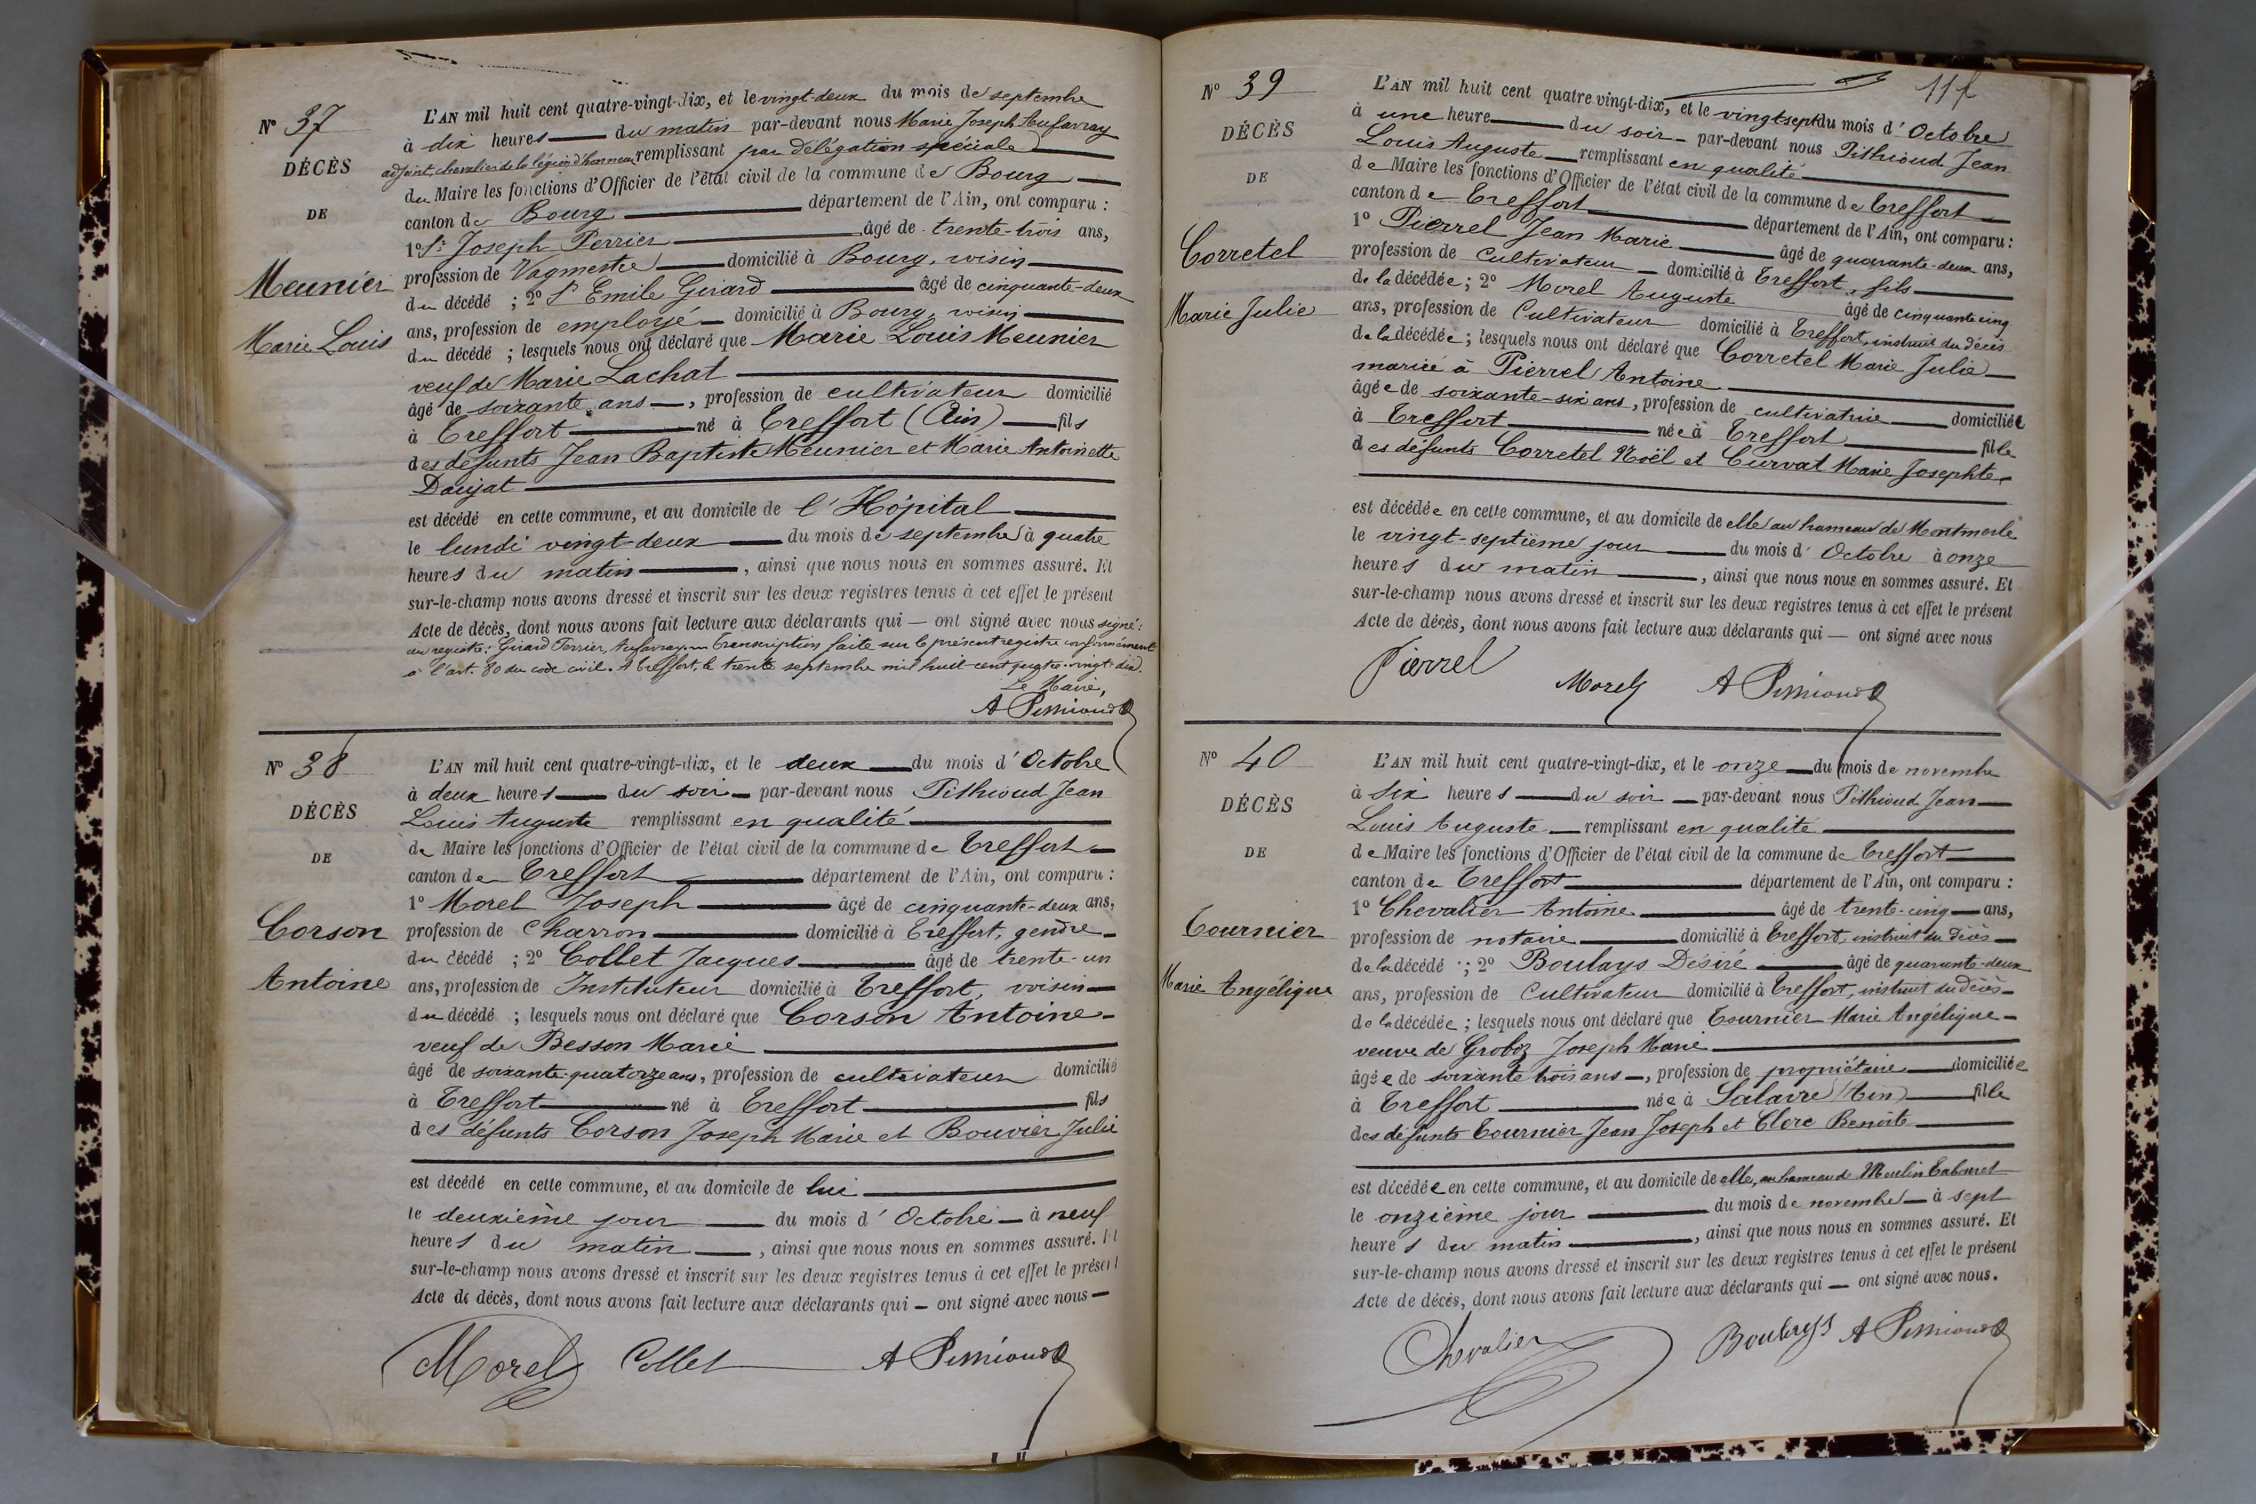 Nº 37
DÉCÈS
DE
Meunier
Marie Louis
L'AN mil huit cent quatre-vingt-dix, et le vingt-deux du mois de septembre
à dix heures du matin par-devant nous Marie Joseph
adjoint, chevalier de la légion d'honneur remplissant par délégation spéciale
du Maire les fonctions d'Officier de l'état civil de la commune de Bourg
canton de Bourg département de l'Ain, ont comparu :
1º Sr Joseph Perrier âgé de trente-trois ans,
profession de Vagmestre domicilié à Bourg, voisin
du décédé ; 2º Sr Emile Girard âgé de cinquante-deux
ans, profession de employé domicilié à Bourg, voisin
du décédé ; lesquels nous ont déclaré que Marie Louis Meunier
veuf de Marie Lachat
âgé de soixante ans, profession de cultivateur domicilié
à Treffort né à Treffort (Ain) fils
des défunts Jean Baptiste Meunier et Marie Antoinette
Daujat
est décédé en cette commune, et au domicile de l'Hôpital
le lundi vingt-deux du mois de septembre à quatre
heures du matin, ainsi que nous nous en sommes assuré. Et
sur-le-champ nous avons dressé et inscrit sur les deux registres tenus à cet effet le présent
Acte de décès, dont nous avons fait lecture aux déclarants qui — ont signé avec nous signé :
au registre : Girard Perrier, Transcription faite sur le présent registre conformément
à l'art. 80 du code civil. A Treffort, le trente septembre mil huit cent quatre-vingt-dix.
Le Maire,
A Pithioud
Nº 38
DÉCÈS
DE
Corson
Antoine
L'AN mil huit cent quatre-vingt-dix, et le deux du mois d'Octobre
à deux heures du soir par-devant nous Pithioud Jean
Louis Auguste remplissant en qualité
de Maire les fonctions d'Officier de l'état civil de la commune de Treffort
canton de Treffort département de l'Ain, ont comparu :
1º Morel Joseph âgé de cinquante-deux ans,
profession de Charron domicilié à Treffort, gendre
du décédé ; 2º Collet Jacques âgé de trente-un
ans, profession de Instituteur domicilié à Treffort, voisin
du décédé ; lesquels nous ont déclaré que Corson Antoine
veuf de Besson Marie
âgé de soixante-quatorze ans, profession de cultivateur domicilié
à Treffort né à Treffort fils
des défunts Corson Joseph Marie et Bouvier Julie
est décédé en cette commune, et au domicile de lui
le deuxième jour du mois d'Octobre à neuf
heures du matin, ainsi que nous nous en sommes assuré. Et
sur-le-champ nous avons dressé et inscrit sur les deux registres tenus à cet effet le présent
Acte de décès, dont nous avons fait lecture aux déclarants qui — ont signé avec nous
Morel Collet A Pithioud
Nº 39
DÉCÈS
DE
Corretel
Marie Julie
L'AN mil huit cent quatre-vingt-dix, et le vingt-sept du mois d'Octobre
à une heure du soir par-devant nous Pithioud Jean
Louis Auguste remplissant en qualité
de Maire les fonctions d'Officier de l'état civil de la commune de Treffort
canton de Treffort département de l'Ain, ont comparu :
1º Pierrel Jean Marie âgé de quarante-deux ans,
profession de Cultivateur domicilié à Treffort, fils
de la décédée ; 2º Morel Auguste âgé de cinquante cinq
ans, profession de Cultivateur domicilié à Treffort, instruit du décès
de la décédée ; lesquels nous ont déclaré que Corretel Marie Julie
mariée à Pierrel Antoine
âgée de soixante-six ans, profession de cultivatrice domiciliée
à Treffort née à Treffort fille
des défunts Corretel Noël et Curvat Marie Josephte
est décédée en cette commune, et au domicile de elle au hameau de Montmerle
le vingt-septième jour du mois d'Octobre à onze
heures du matin, ainsi que nous nous en sommes assuré. Et
sur-le-champ nous avons dressé et inscrit sur les deux registres tenus à cet effet le présent
Acte de décès, dont nous avons fait lecture aux déclarants qui — ont signé avec nous
Pierrel Morel A Pithioud
Nº 40
DÉCÈS
DE
Tournier
Marie Angélique
L'AN mil huit cent quatre-vingt-dix, et le onze du mois de novembre
à six heures du soir par-devant nous Pithioud Jean
Louis Auguste remplissant en qualité
de Maire les fonctions d'Officier de l'état civil de la commune de Treffort
canton de Treffort département de l'Ain, ont comparu :
1º Chevalier Antoine âgé de trente-cinq ans,
profession de notaire domicilié à Treffort, instruit du décès
de la décédé ; 2º Boulays Désiré âgé de quarante-deux
ans, profession de Cultivateur domicilié à Treffort, instruit du décès
de la décédée ; lesquels nous ont déclaré que Tournier Marie Angélique
veuve de Groboz Joseph Marie
âgée de soixante trois ans, profession de propriétaire domiciliée
à Treffort née à Salavre (Ain) fille
des défunts Tournier Jean Joseph et Clerc Benoîte
est décédée en cette commune, et au domicile de elle, au hameau de Moulin Tabouret
le onzième jour du mois de novembre à sept
heures du matin, ainsi que nous nous en sommes assuré. Et
sur-le-champ nous avons dressé et inscrit sur les deux registres tenus à cet effet le présent
Acte de décès, dont nous avons fait lecture aux déclarants qui — ont signé avec nous.
Chevalier Boulays A Pithioud